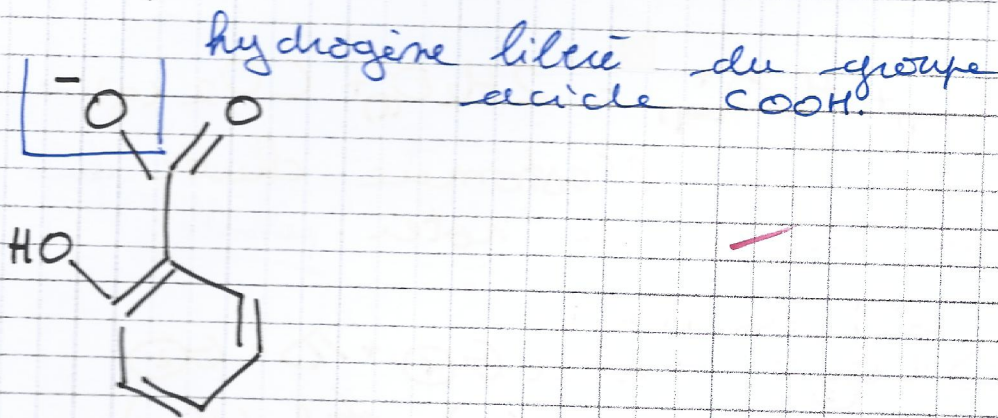 hydrogène libéré du groupe
acide COOH.
-
O O
HO